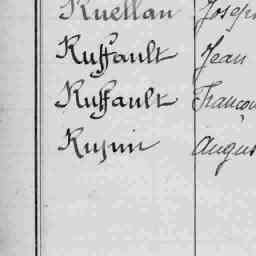 Ruellan Joseph
Ruffault Jean
Ruffault Franço
Rupin Augus